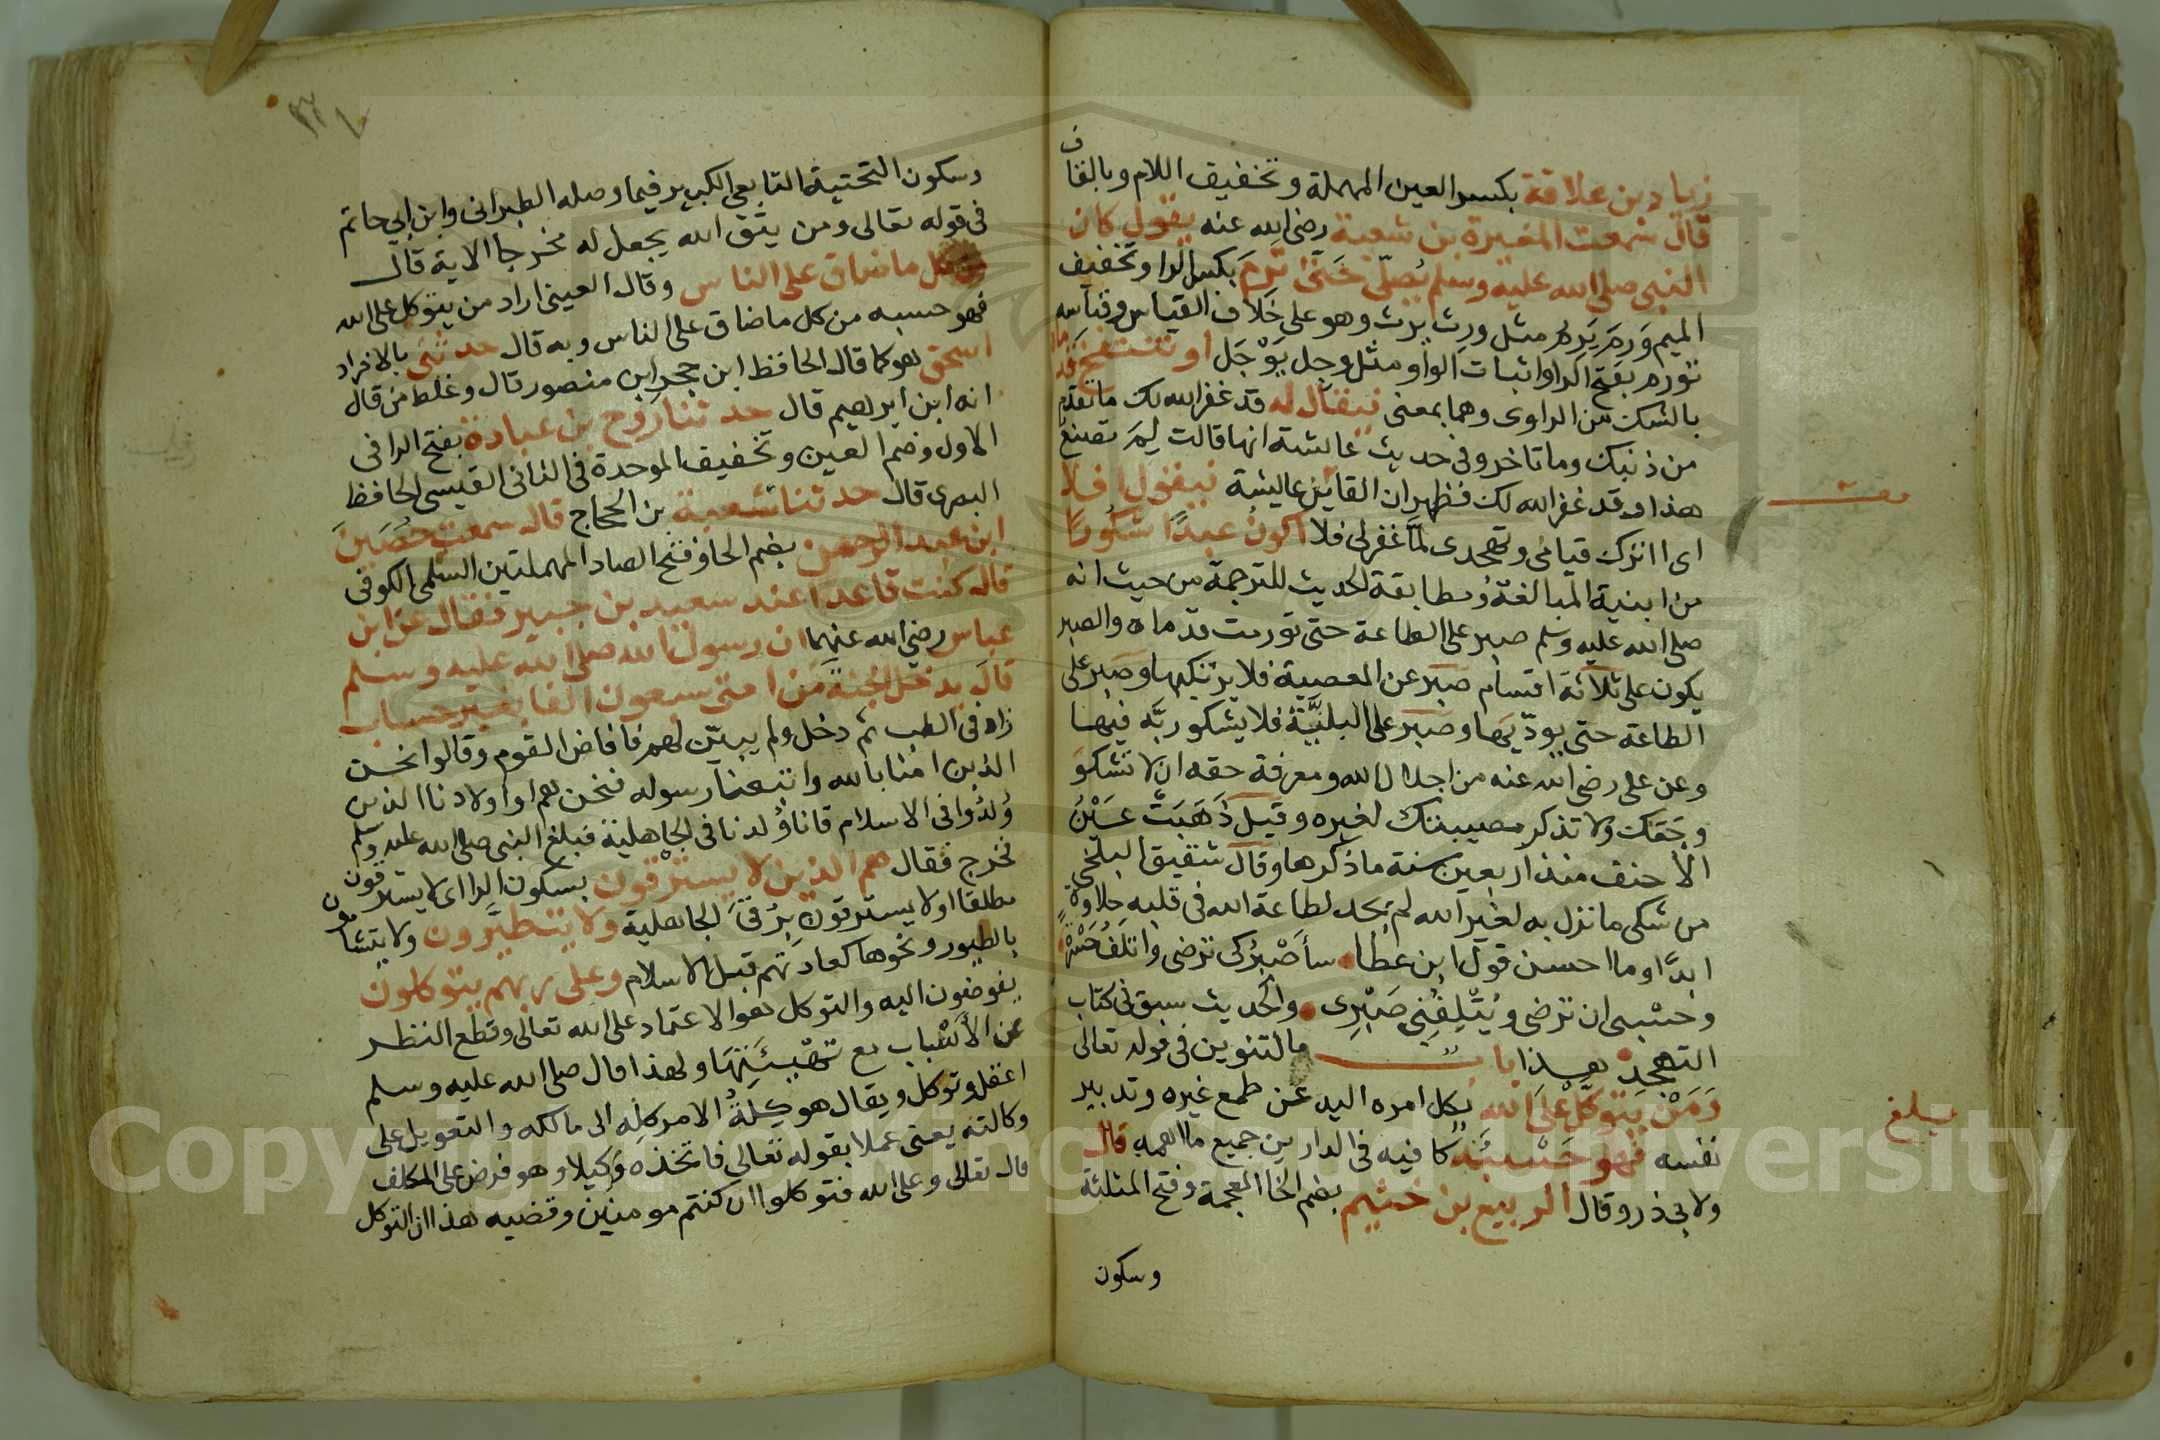 زياد بن علاقة بكسر العين المهملة وتخفيف اللام وبالقاف
قال سمعت المغيرة بن شعبة رضي الله عنه يقول كان
النبي صلى الله عليه وسلم يُصلّي حَتّىٰ تَرِمَ بكسر الرا وتخفيف
الميم وَرِمَ يَرِمُ مثل ورِث يرث وهو على خلاف القياس وقياسه
تورم بفتح الرا واثبات الواو مثل وجِل يَوْجَل او تنتفخ قدماه
بالشك من الراوي وهما بمعنى فيقال له قد غفر الله لك ما تقدم
من ذنبك وما تاخر وفي حديث عايشة انها قالت لِمَ تصنع
هذا وقد غفر الله لك فظهر ان القايل عايشة فيقول افلا
اي اترك قيامي وتهجدي لمّا غفر لي فلا اكونُ عبدًا شكورًا
من ابنية المبالغة ومطابقة الحديث للترجمة من حيث انه
صلى الله عليه وسلم صبر على الطاعة حتى تورمت قدماه والصبر
يكون على ثلاثة اقسام صبر عن المعصية فلا يرتكبها وصبر على
الطاعة حتى يودّيها وصبر على البليّة فلا يشكو ربّه فيها
وعن علي رضي الله عنه من اجلال الله ومعرفة حقه ان لا تشكو
وجَعَك ولا تذكر مصيبتك لغيره وقيل ذَهَبَتْ عَيْنُ
الأحنف منذ اربعين سنة ما ذكرها وقال شقيق البلخي
من شكى ما نزل به لغير الله لم يجد لطاعة الله في قلبه حلاوةً
ابدًا وما احسن قول ابن عطا سأَصْبِرُ كي ترضى واتلَفُ حَسْرَةً
وحَسْبي ان ترضى ويُتْلِفُنِي صَبْرِي والحديث سبق في كتاب
التهجد هذا باب بالتنوين في قوله تعالى
وَمَنْ يَتَوكّلْ عَلَى الله يكل امره اليه عن طمع غيره وتدبير
نفسه فهو حَسْبُه كافيه في الدارين جميع ما اهمه قال
ولابي ذر وقال الربيع بن خثيم بضم الخا المعجمة وفتح المثلثة
وسكون
يبلغ
وسكون التحتية التابعي الكبير فيما وصله الطبراني وابن ابي حاتم
في قوله تعالى ومن يتق الله يجعل له مخرجا الاية قال
من كل ما ضاق على الناس وقال العيني اراد من يتوكل على الله
فهو حسبه من كل ما ضاق على الناس وبه قال حدثني بالافراد
اسحق هو كما قال الحافظ ابن حجر ابن منصور قال وغلط من قال
انه ابن ابرهيم قال حدثنا روح بن عبادة بفتح الرا في
الاول وضم العين وتخفيف الموحدة في الثاني القيسي الحافظ
البصري قال حدثنا شعبة بن الحجاج قال سمعت حُصَينَ
ابن عبد الرحمن بضم الحا وفتح الصاد المهملتين السلمي الكوفي
قال كنت قاعدا عند سعيد بن جبير فقال عن ابن
عباس رضي الله عنهما ان رسول الله صلى الله عليه وسلم
قال يدخل الجنة من امتي سبعون الفا بغير حساب
زاد في الطب ثم دخل ولم يبيّن لهم فافاض القوم وقالوا نحن
الذين امنا بالله واتبعنا رسوله فنحن هم او اولادنا الذين
وُلدُوا في الاسلام فانا وُلدنا في الجاهلية فبلغ النبي صلى الله عليه وسلم
فخرج فقال هم الذين لا يسترقون بسكون الرا اي لا يسترقون
مطلقا او لا يسترقون برُقَى الجاهلية ولا يتطيّرون ولا يتشامون
بالطيور ونحوها كعادتهم قبل الاسلام وعلى ربهم يتوكلون
يفوضون اليه والتوكل هو الاعتماد على الله تعالى وقطع النظر
عن الأسْباب مع تهْيِئَتِهَا ولهذا قال صلى الله عليه وسلم
اعقل وتوكل ويقال هو كِلَةُ الامر كلِه الى مالكه والتعويل على
وكالته يعني عملا بقوله تعالى فاتخذه وكيلا وهو فرض على المكلف
قال تعالى وعلى الله فتوكلوا ان كنتم مومنين وقضيه هذا ان التوكل
Copyright © King Saud University